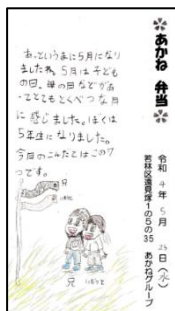 ✽あかね 弁当✽
令和4年5月25日(水)
若林区遠見塚1の5の35 あかねグループ
あっというまに5月になり
ましたね。5月は子ども
の日、母の日などがあ
ってとてもとくべつな月
に感じました。ぼくは
5年生になりました。
今日のこんだてはこの7
つです。
兄
いもうと
兄
いもうと